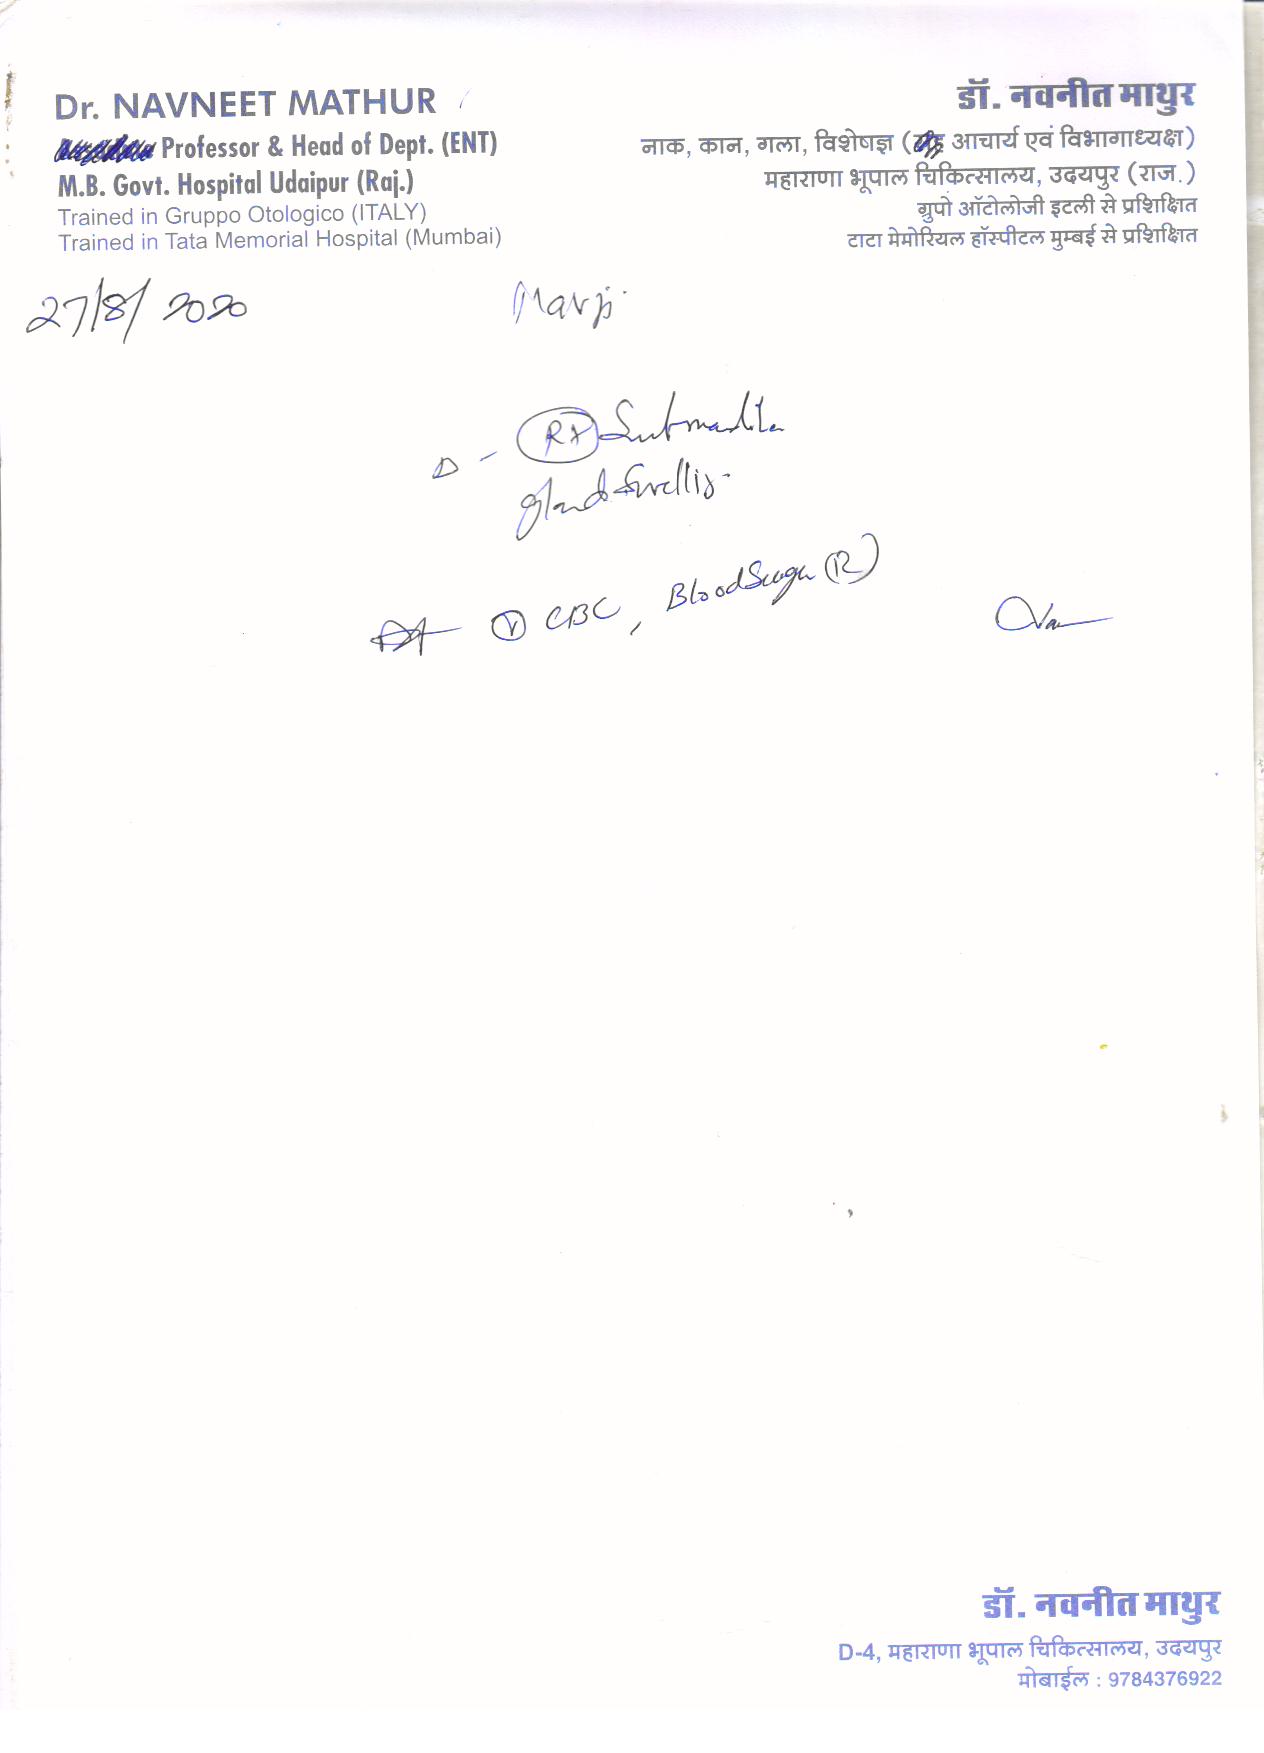 Dr. NAVNEET MATHUR
Professor & Head of Dept. (ENT)
M.B. Govt. Hospital Udaipur (Raj.)
Trained in Gruppo Otologico (ITALY)
Trained in Tata Memorial Hospital (Mumbai)
डॉ. नवनीत माथुर
नाक, कान, गला, विशेषज्ञ ( आचार्य एवं विभागाध्यक्ष)
महाराणा भूपाल चिकित्सालय, उदयपुर (राज.)
ग्रुपो ऑटोलोजी इटली से प्रशिक्षित
टाटा मेमोरियल हॉस्पीटल मुम्बई से प्रशिक्षित
27/8/2020
D - Rt
gland
CBC, Blood Sugar (R)
डॉ. नवनीत माथुर
D-4, महाराणा भूपाल चिकित्सालय, उदयपुर
मोबाईल : 9784376922